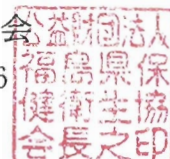 会
6
公益財団法人
福島県保
健衛生協
会長之印